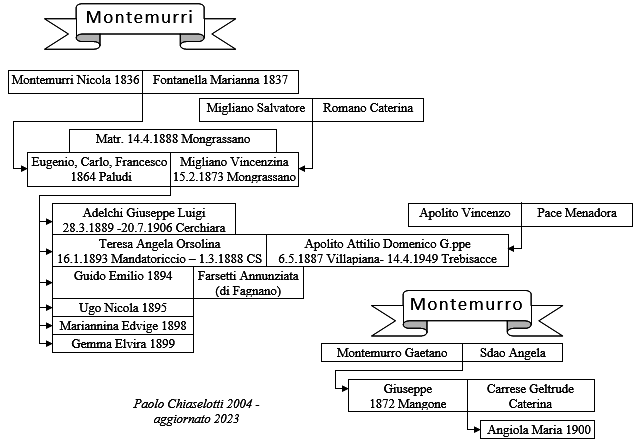 Montemurri
Montemurri Nicola 1836 Fontanella Marianna 1837
Migliano Salvatore Romano Caterina
Matr. 14.4.1888 Mongrassano
Eugenio, Carlo, Francesco Migliano Vincenzina
1864 Paludi 15.2.1873 Mongrassano
Adelchi Giuseppe Luigi
28.3.1889 -20.7.1906 Cerchiara
Apolito Vincenzo Pace Menadora
Teresa Angela Orsolina Apolito Attilio Domenico G.ppe
16.1.1893 Mandatoriccio – 1.3.1888 CS 6.5.1887 Villapiana- 14.4.1949 Trebisacce
Guido Emilio 1894 Farsetti Annunziata
(di Fagnano)
Ugo Nicola 1895
Mariannina Edvige 1898
Gemma Elvira 1899
Montemurro
Montemurro Gaetano Sdao Angela
Giuseppe Carrese Geltrude
1872 Mangone Caterina
Angiola Maria 1900
Paolo Chiaselotti 2004 -
aggiornato 2023